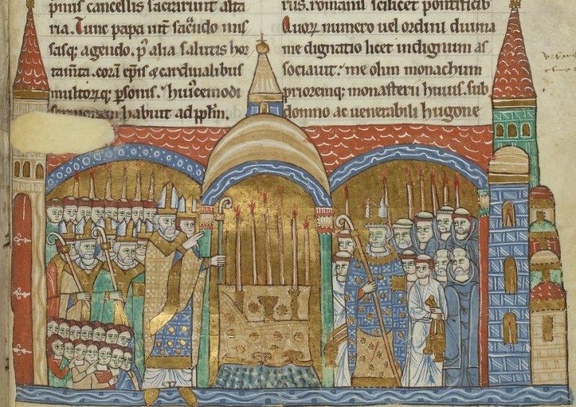 cancellis sacrarunt alta
ria. Tunc papa int̄ sacn̄do mis
sasq; agendo. p̄ alia salutis hor
tam̄ta. corā ep̄is & cardinalibus
multorq; ꝑsonis. huiꝰcemodi
sermonem habuit ad pp̄lm.
rus. romani scilicet pontificib
Quoꝝ numero uel ordini diuina
me dignatio licet indignum as
sociauit. me olim monachum
prioremq; monasterii huius. sub
donno ac uenerabili hugone